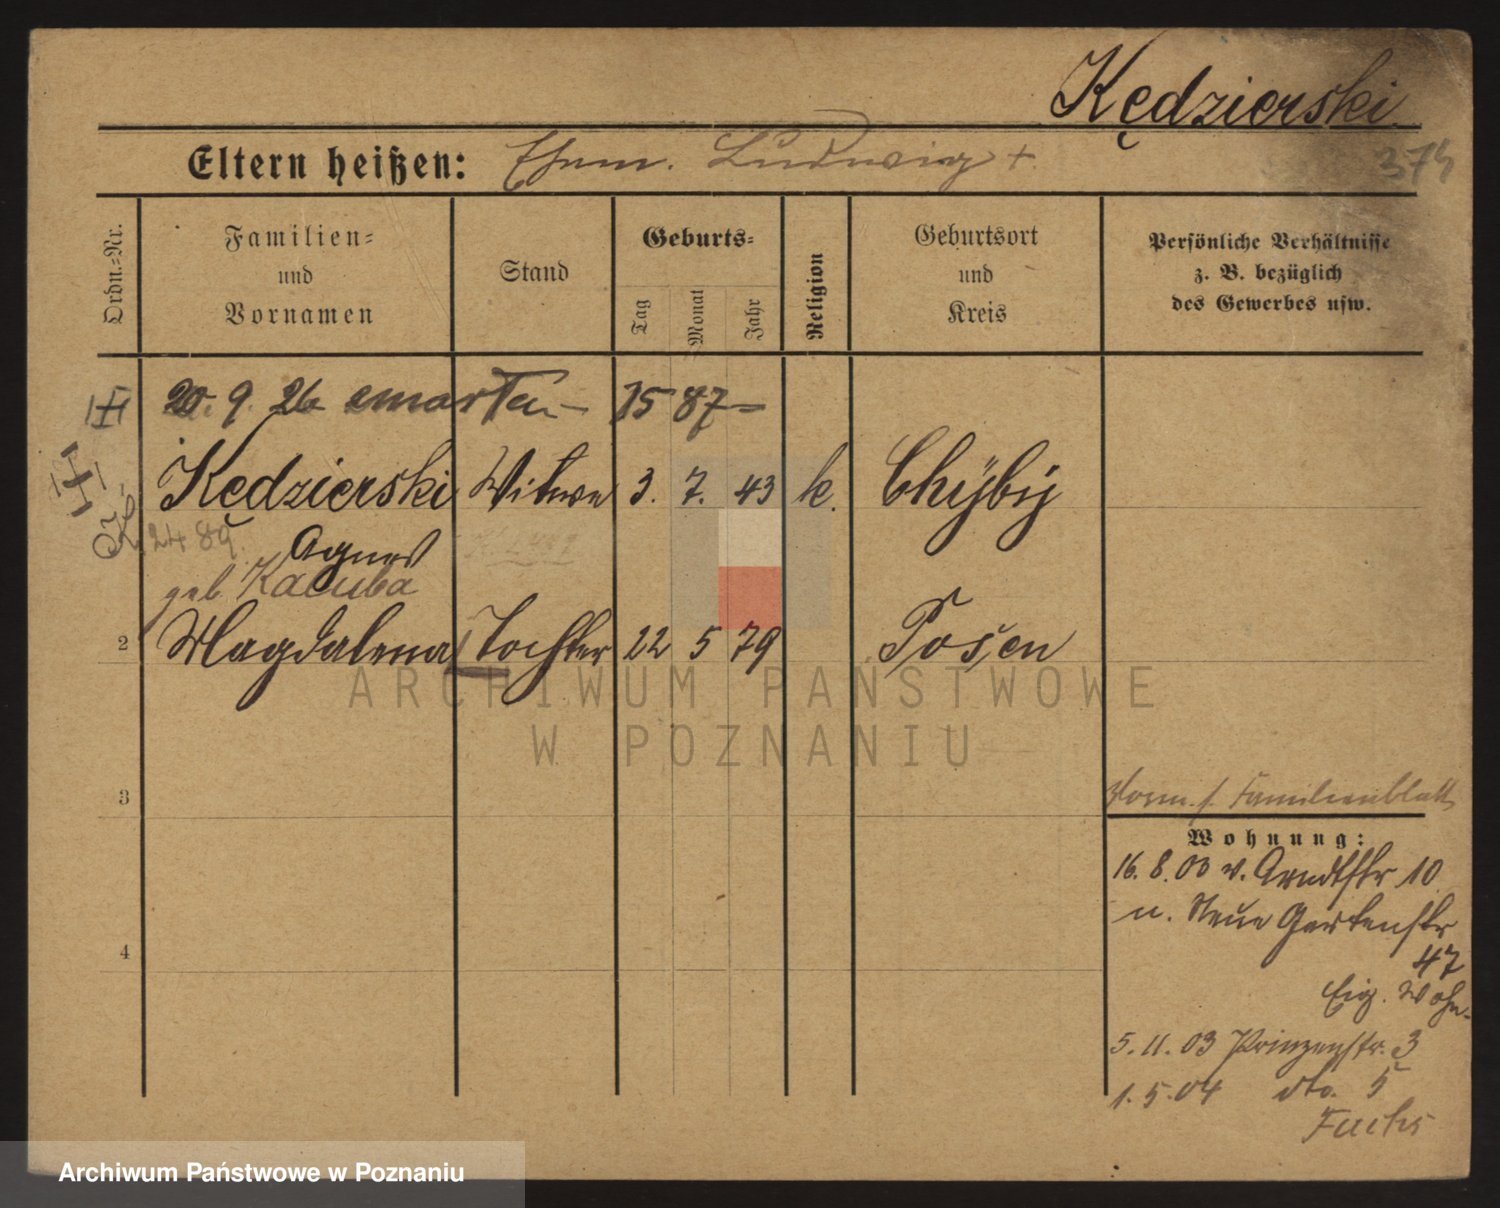 Kędzierski
Eltern heißen: Ehem. Ludwig +
374
Ordn.-Nr.
Familien-
und
Vornamen
Stand
Geburts-
Tag
Monat
Jahr
Religion
Geburtsort
und
Kreis
Persönliche Verhältnisse
z. B. bezüglich
des Gewerbes usw.
20. 9. 26 zmarła 1587
Kędzierski Witwe 3. 7. 43 k. Chÿbÿ
K. 2489.
Agnes
geb. Kaczuba
2 Magdalena Tochter 22 5 79 Posen
3
4
Vorm. s. Familienblatt
Wohnung:
16. 8. 00 v. Arndtstr 10
n. Neue Gartenstr
47
Eig. Wohn-
5. 11. 03 Prinzenstr. 3
1. 5. 04 dto. 5
Fuchs
ARCHIWUM PAŃSTWOWE
W POZNANIU
Archiwum Państwowe w Poznaniu